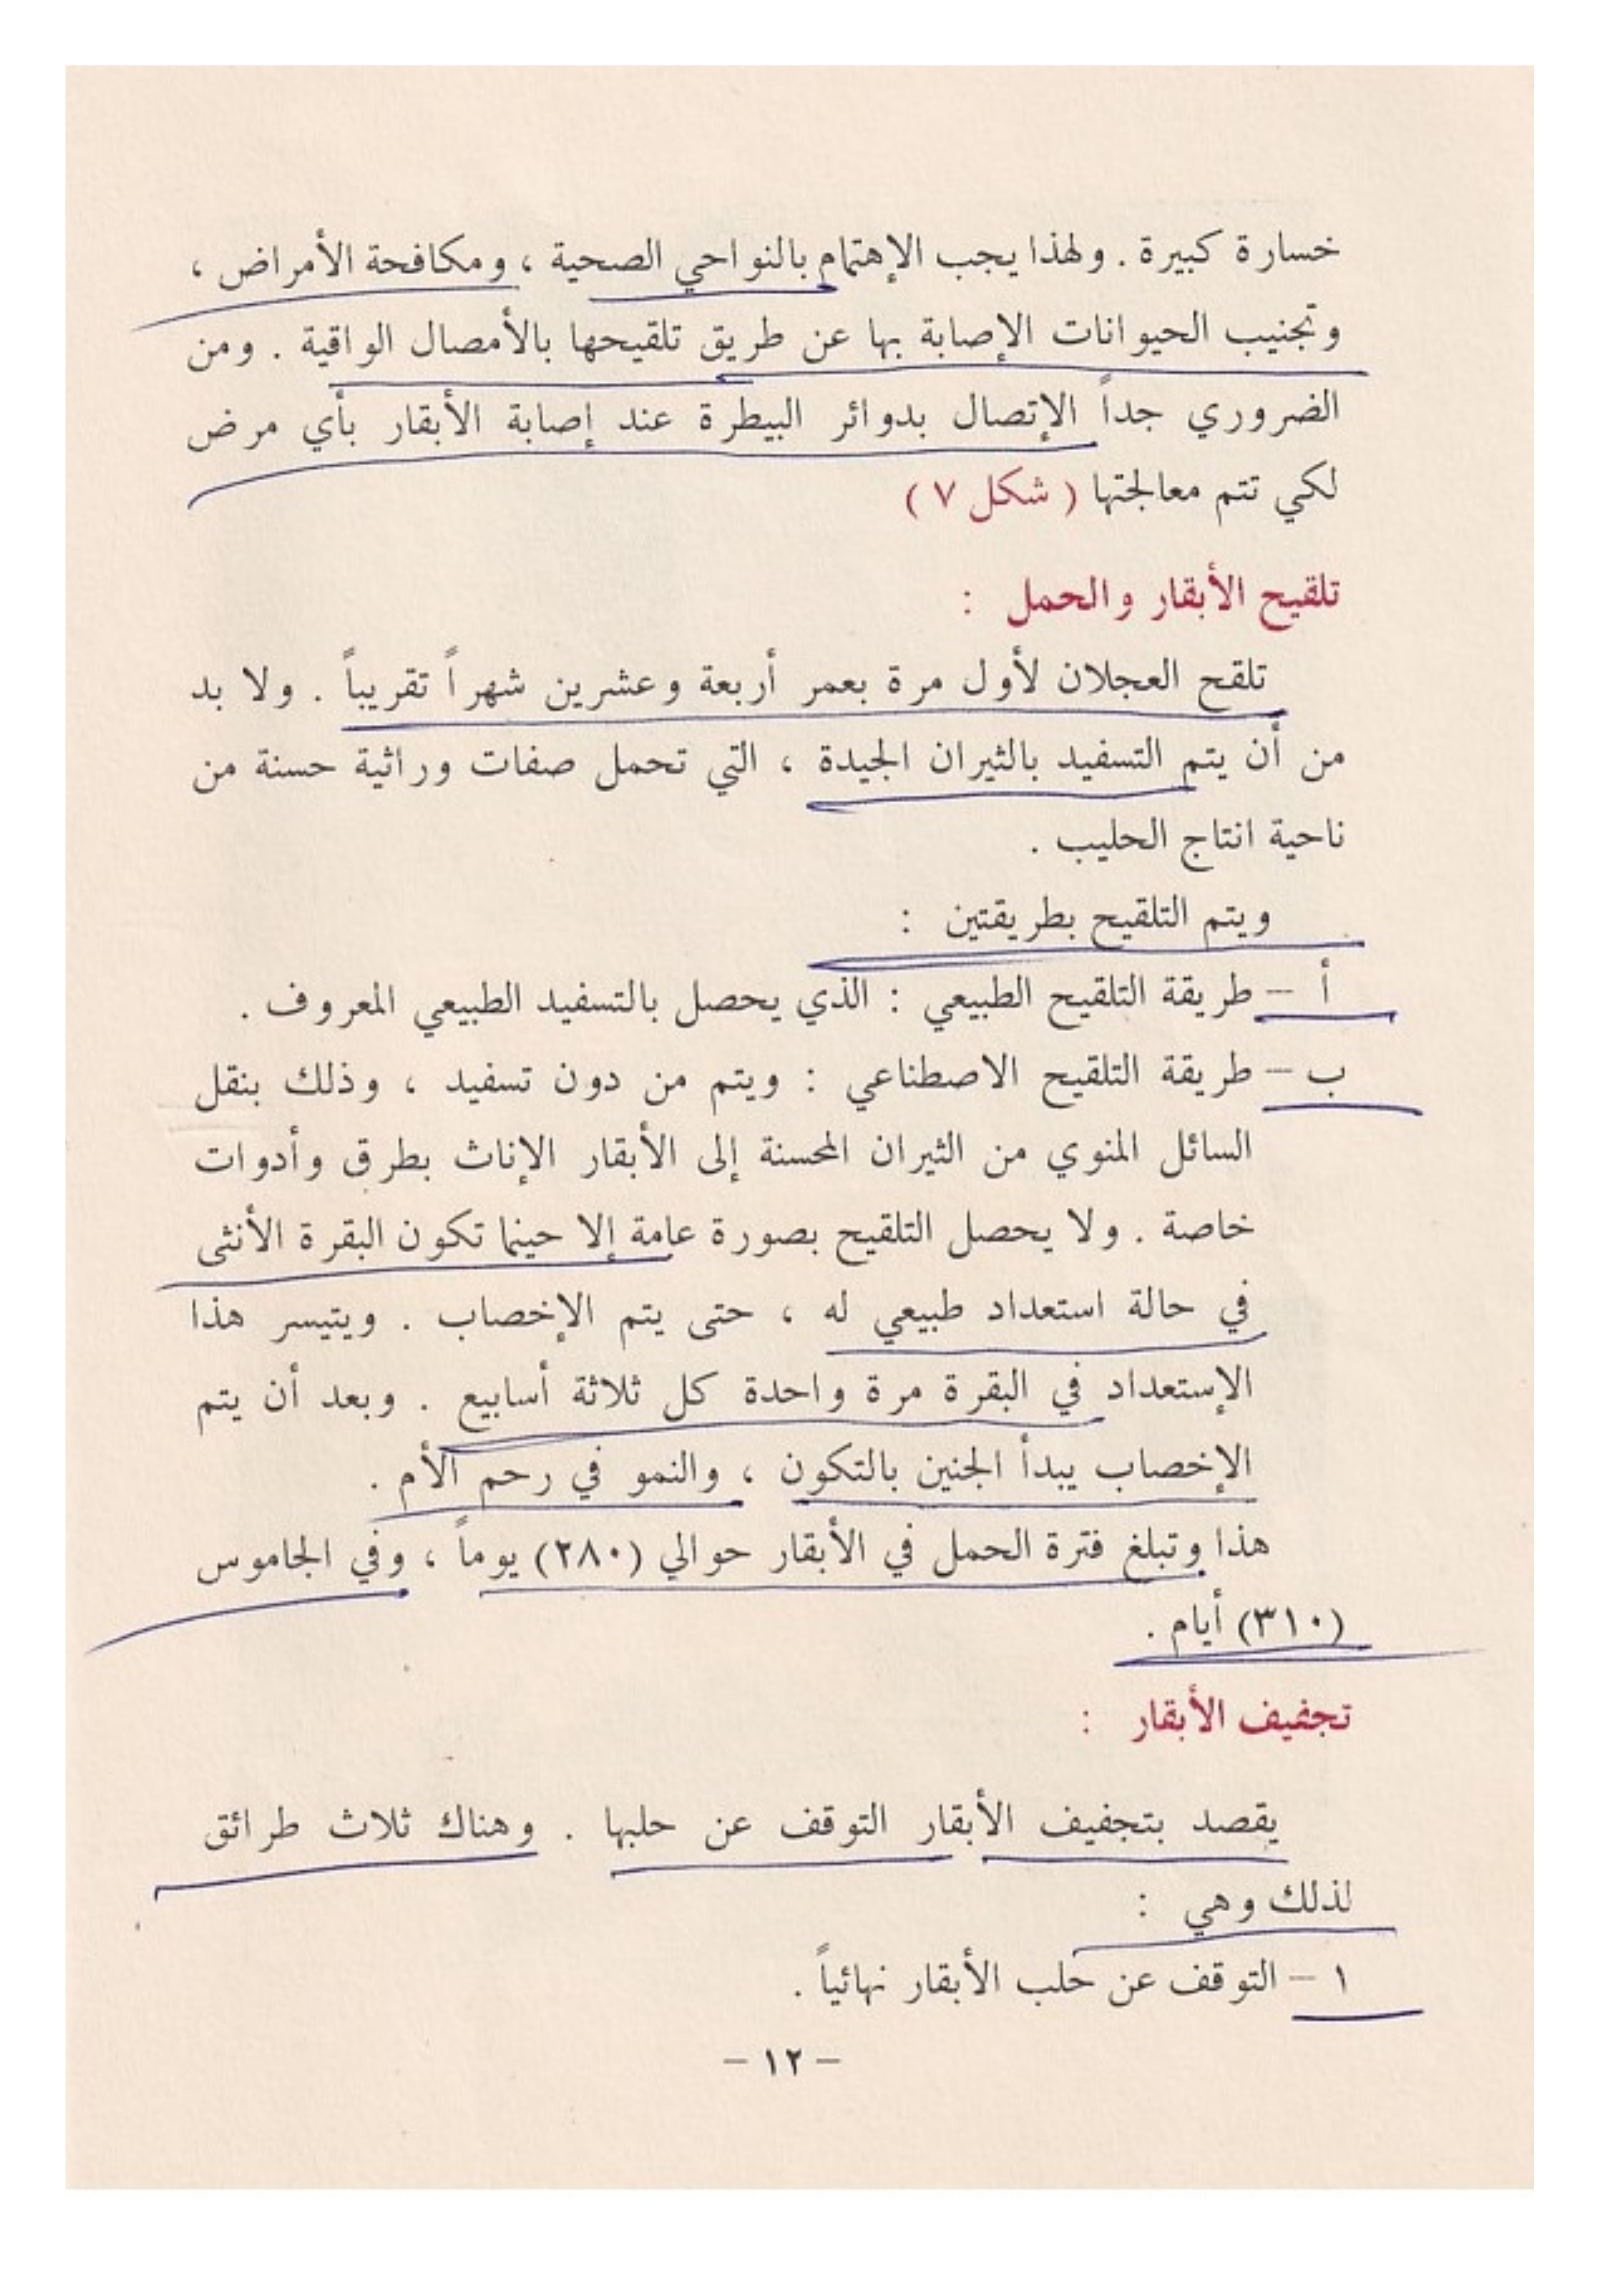 خسارة كبيرة . ولهذا يجب الإهتمام بالنواحي الصحية ، ومكافحة الأمراض ،
وتجنيب الحيوانات الإصابة بها عن طريق تلقيحها بالأمصال الواقية . ومن
الضروري جداً الإتصال بدوائر البيطرة عند إصابة الأبقار بأي مرض
لكي تتم معالجتها ( شكل ٧ )
تلقيح الأبقار والحمل :
تلقح العجلان لأول مرة بعمر أربعة وعشرين شهراً تقريباً . ولا بد
من أن يتم التسفيد بالثيران الجيدة ، التي تحمل صفات وراثية حسنة من
ناحية انتاج الحليب .
ويتم التلقيح بطريقتين :
أ – طريقة التلقيح الطبيعي : الذي يحصل بالتسفيد الطبيعي المعروف .
ب – طريقة التلقيح الاصطناعي : ويتم من دون تسفيد ، وذلك بنقل
السائل المنوي من الثيران المحسنة إلى الأبقار الإناث بطرق وأدوات
خاصة . ولا يحصل التلقيح بصورة عامة إلا حينما تكون البقرة الأنثى
في حالة استعداد طبيعي له ، حتى يتم الإخصاب . ويتيسر هذا
الإستعداد في البقرة مرة واحدة كل ثلاثة أسابيع . وبعد أن يتم
الإخصاب يبدأ الجنين بالتكون ، والنمو في رحم الأم .
هذا وتبلغ فترة الحمل في الأبقار حوالي (٢٨٠) يوماً ، وفي الجاموس
(٣١٠) أيام .
تجفيف الأبقار :
يقصد بتجفيف الأبقار التوقف عن حلبها . وهناك ثلاث طرائق
لذلك وهي :
١ – التوقف عن حلب الأبقار نهائياً .
– ١٢ –